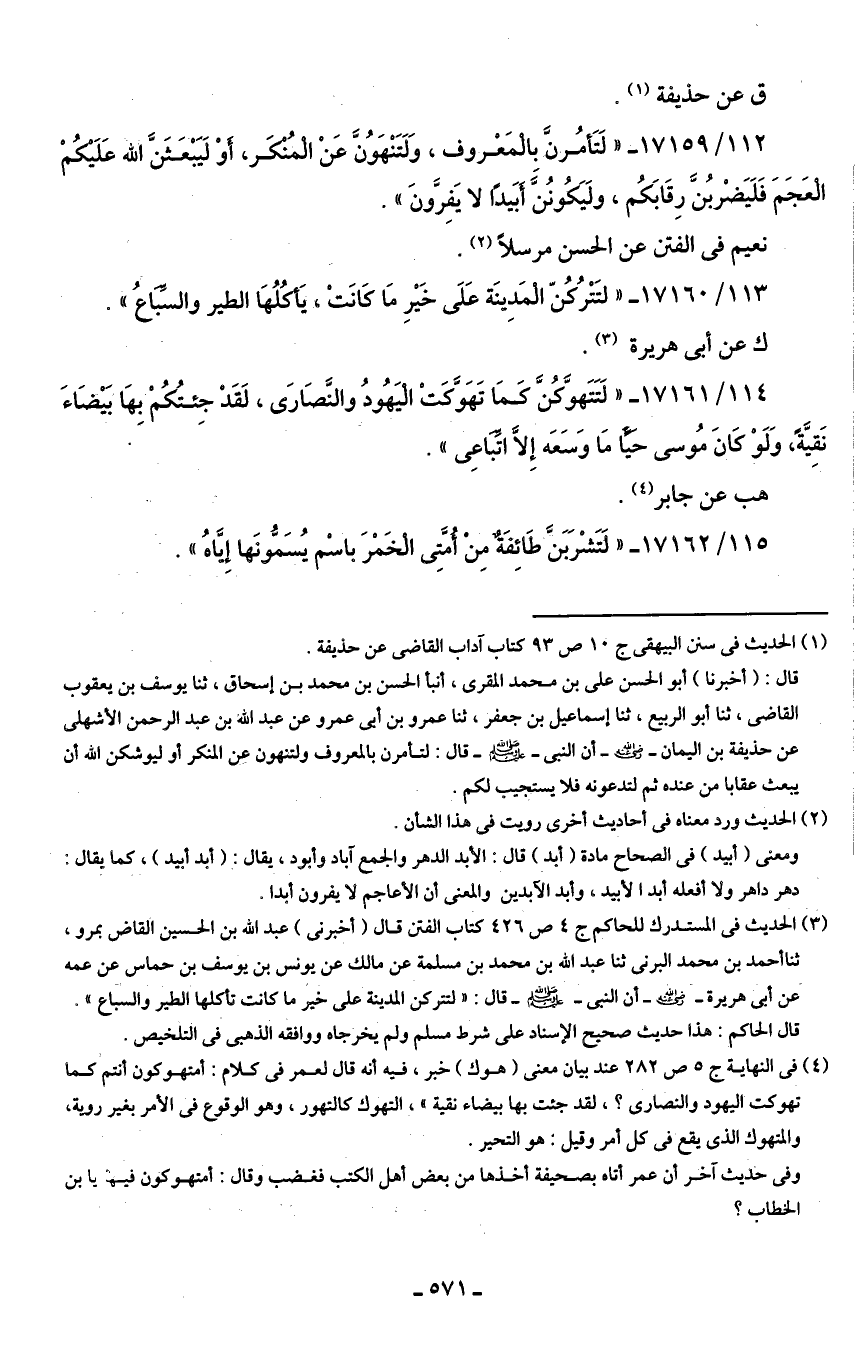 ق عن حذيفة (١) .
١١٢/ ١٧١٥٩ـ « لَتَأمُرنَّ بِالمَعْروف ، وَلَتَنْهَوُنَّ عَنْ المُنْكَر، أوْ لَيَبْعَثَنَّ الله عَلَيْكُمْ
العَجَمَ فَلَيَضْرِبُنَّ رِقَابَكُم ، ولَيَكُونُنَّ أبَيدًا لا يَفِرَّونَ » .
نعيم فى الفتن عن الحسن مرسلاً (٢) .
١١٣/ ١٧١٦٠ـ « لتَتْرُكُنّ المَدِينَة عَلَى خَيْرِ مَا كَانَتْ ، يَأكُلُهَا الطير والسِّبَاعُ » .
ك عن أبى هريرة (٣) .
١١٤/ ١٧١٦١ـ « لَتَتَهوَّكُنَّ كَمَا تَهَوَّكَتْ اليَهُودُ والنَّصَارَى ، لَقَدْ جِئتُكُمْ بِهَا بَيْضَاءَ
نَقِيَّةً، وَلَوْ كَانَ مُوسى حَيّاً مَا وَسَعَه إلاَّ اتِّبَاعِى » .
هب عن جابر(٤) .
١١٥/ ١٧١٦٢ـ « لَتَشْرَبَنَّ طَائِفَةٌ مِنْ أُمَّتِى الخَمْرَ بِاسْمٍ يُسَمُّونَها إيَّاهُ » .
(١) الحديث فى سنن البيهقى ج ١٠ ص ٩٣ كتاب آداب القاضى عن حذيفة .
قال : ( أخبرنا ) أبو الحسن على بن محمد المقرى ، أنبأ الحسن بن محمد بن إسحاق ، ثنا يوسف بن يعقوب
القاضى ، ثنا أبو الربيع ، ثنا إسماعيل بن جعفر ، ثنا عمرو بن أبى عمرو عن عبد الله بن عبد الرحمن الأشهلى
عن حذيفة بن اليمان ـ رضي الله عنه ـ أن النبى ـ ﷺ ـ قال : لتأمرن بالمعروف ولتنهون عن المنكر أو ليوشكن الله أن
يبعث عقابا من عنده ثم لتدعونه فلا يستجيب لكم .
(٢) الحديث ورد معناه فى أحاديث أخرى رويت فى هذا الشأن .
ومعنى ( أبيد ) فى الصحاح مادة ( أبد ) قال : الأبد الدهر والجمع آباد وأبود ، يقال : ( أبد أبيد ) ، كما يقال :
دهر داهر ولا أفعله أبد ا لأبيد ، وأبد الآبدين والمعنى أن الأعاجم لا يفرون أبدا .
(٣) الحديث فى المستدرك للحاكم ج ٤ ص ٤٢٦ كتاب الفتن قال ( أخبرنى ) عبد الله بن الحسين القاض بمرو ،
ثناأحمد بن محمد البرنى ثنا عبد الله بن محمد بن مسلمة عن مالك عن يونس بن يوسف بن حماس عن عمه
عن أبى هريرة ـ رضي الله عنه ـ أن النبى ـ ﷺ ـ قال : « لتتركن المدينة على خير ما كانت تأكلها الطير والسباع » .
قال الحاكم : هذا حديث صحيح الإسناد على شرط مسلم ولم يخرجاه ووافقه الذهبى فى التلخيص .
(٤) فى النهاية ج ٥ ص ٢٨٢ عند بيان معنى ( هوك ) خبر ، فيه أنه قال لعمر فى كلام : أمتهوكون أنتم كما
تهوكت اليهود والنصارى ؟ ، لقد جئت بها بيضاء نقية » ، التهوك كالتهور ، وهو الوقوع فى الأمر بغير روية،
والمتهوك الذى يقع فى كل أمر وقيل : هو التحير .
وفى حديث آخر أن عمر أتاه بصحيفة أخذها من بعض أهل الكتب فغضب وقال : أمتهوكون فيها يا بن
الخطاب ؟
ـ ٥٧١ ـ